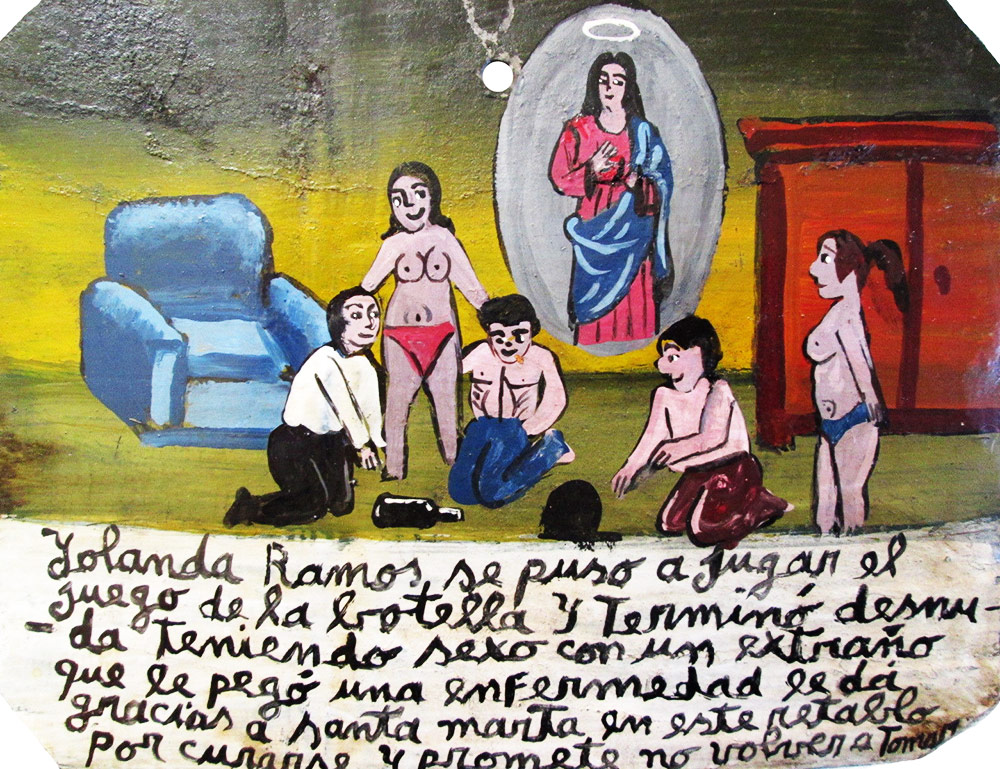 Yolanda Ramos, se puso a jugar el
juego de la botella y Terminó desnu-
-da teniendo sexo con un extraño
que le pegó una enfermedad le dá
gracias a santa marta en este retablo
por curarse y promete no volver a Tomar